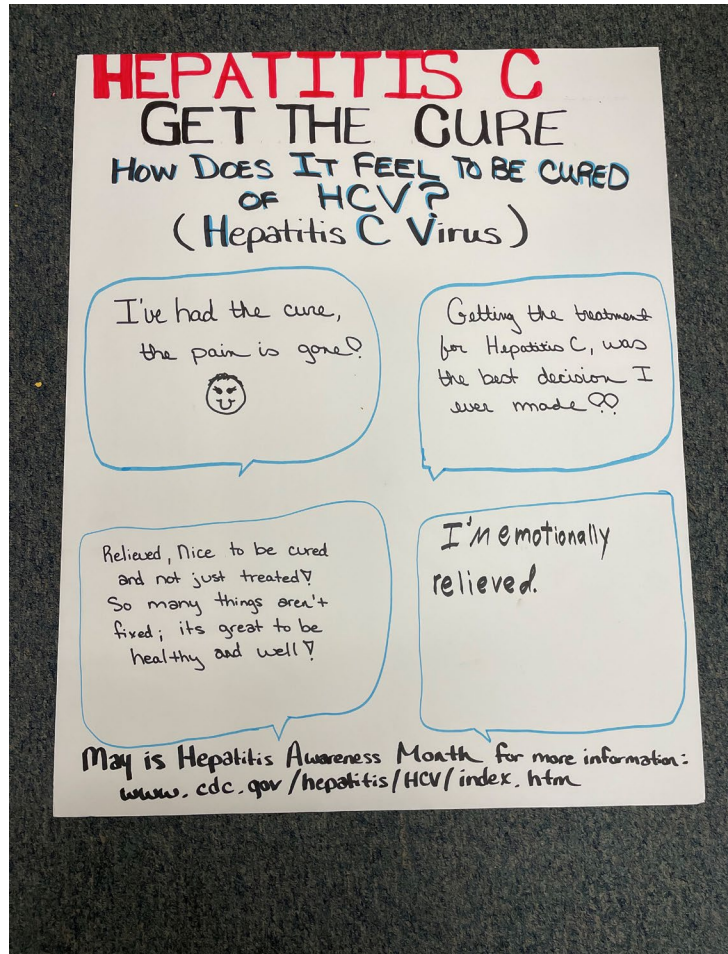 HEPATITIS C
GET THE CURE
HOW DOES IT FEEL TO BE CURED
OF HCV?
(Hepatitis C Virus)
I've had the cure,
the pain is gone!
Getting the treatment
for Hepatitis C, was
the best decision I
ever made!!
Relieved, Nice to be cured
and not just treated!
So many things aren't
fixed; its great to be
healthy and well!
I'm emotionally
relieved.
May is Hepatitis Awareness Month for more information:
www.cdc.gov/hepatitis/HCV/index.htm